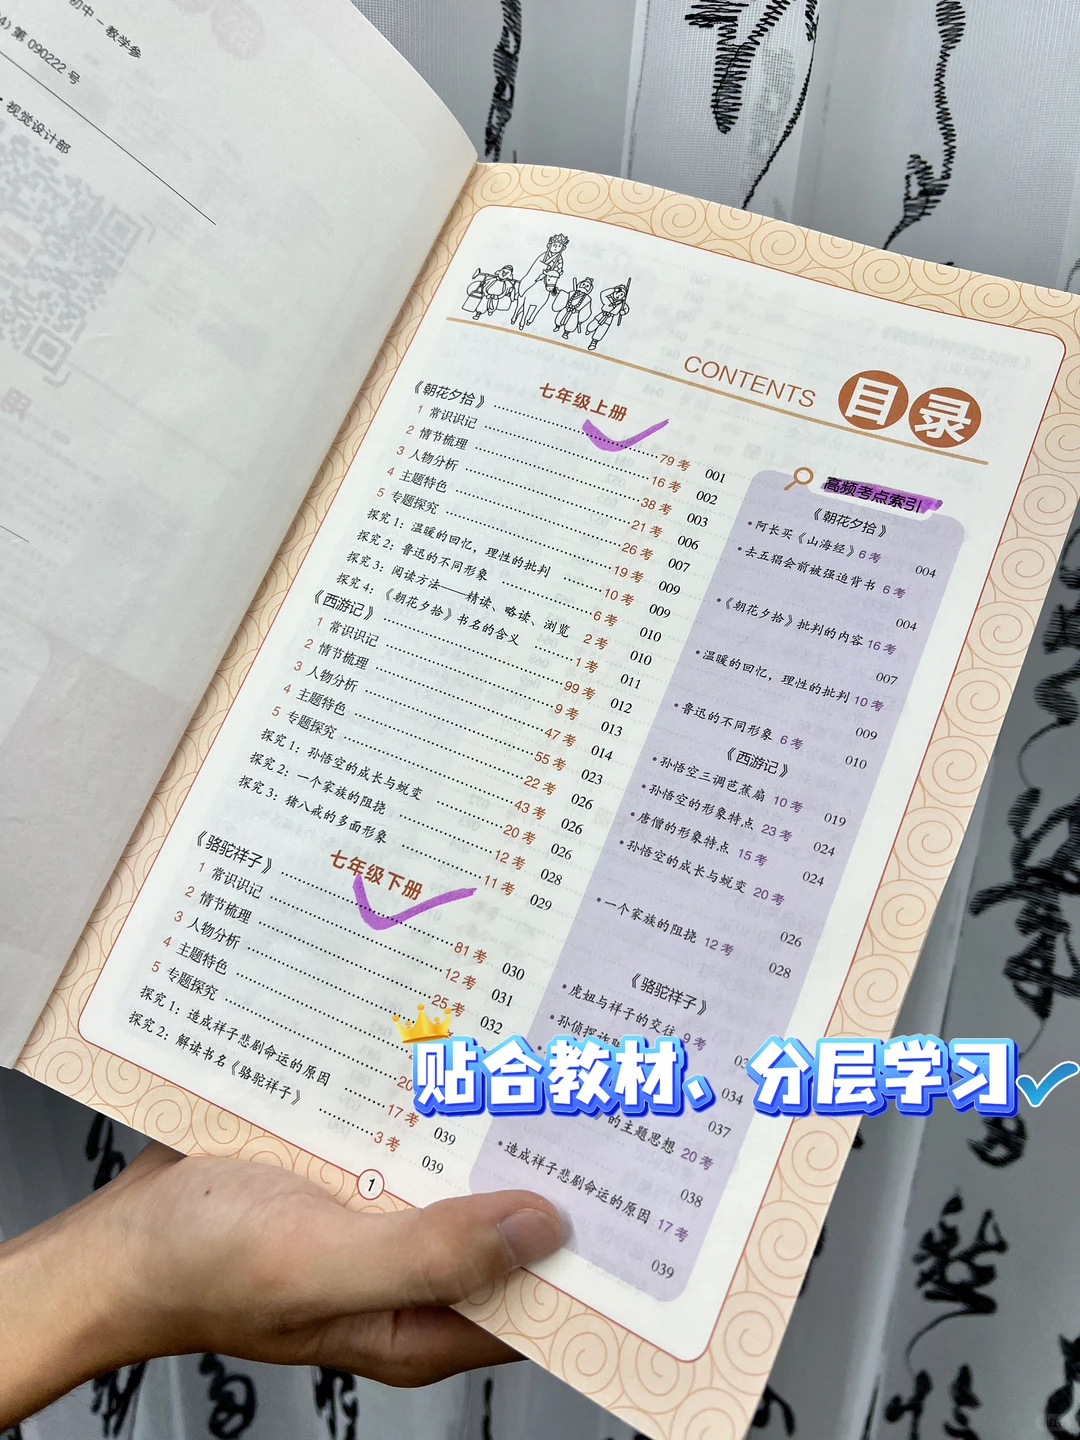 初中-教学参
4) 第 090222 号
视觉设计部
CONTENTS 目录
七年级上册
《朝花夕拾》 79考 001
1 常识识记 16考 002
2 情节梳理 38考 003
3 人物分析 21考 006
4 主题特色 26考 007
5 专题探究 19考 009
探究1：温暖的回忆，理性的批判 10考 009
探究2：鲁迅的不同形象 6考 010
探究3：阅读方法——精读、略读、浏览 2考 010
探究4：《朝花夕拾》书名的含义 1考 011
《西游记》 99考 012
1 常识识记 9考 013
2 情节梳理 47考 014
3 人物分析 55考 023
4 主题特色 22考 026
5 专题探究 43考 026
探究1：孙悟空的成长与蜕变 20考 026
探究2：一个家族的阻挠 12考 028
探究3：猪八戒的多面形象 11考 029
七年级下册
《骆驼祥子》 81考 030
1 常识识记 12考 031
2 情节梳理 25考 032
3 人物分析
4 主题特色
5 专题探究 20
探究1：造成祥子悲剧命运的原因 17考 039
探究2：解读书名《骆驼祥子》 3考 039
1
高频考点索引
《朝花夕拾》
·阿长买《山海经》6考 004
·去五猖会前被强迫背书 6考
004
·《朝花夕拾》批判的内容 16考
007
·温暖的回忆，理性的批判 10考
009
·鲁迅的不同形象 6考 010
《西游记》
·孙悟空三调芭蕉扇 10考 019
·孙悟空的形象特点 23考 024
·唐僧的形象特点 15考 024
·孙悟空的成长与蜕变 20考
026
·一个家族的阻挠 12考
028
《骆驼祥子》
·虎妞与祥子的交往 9考
·孙侦探
034
037
的主题思想 20考
038
·造成祥子悲剧命运的原因 17考
039
贴合教材、分层学习